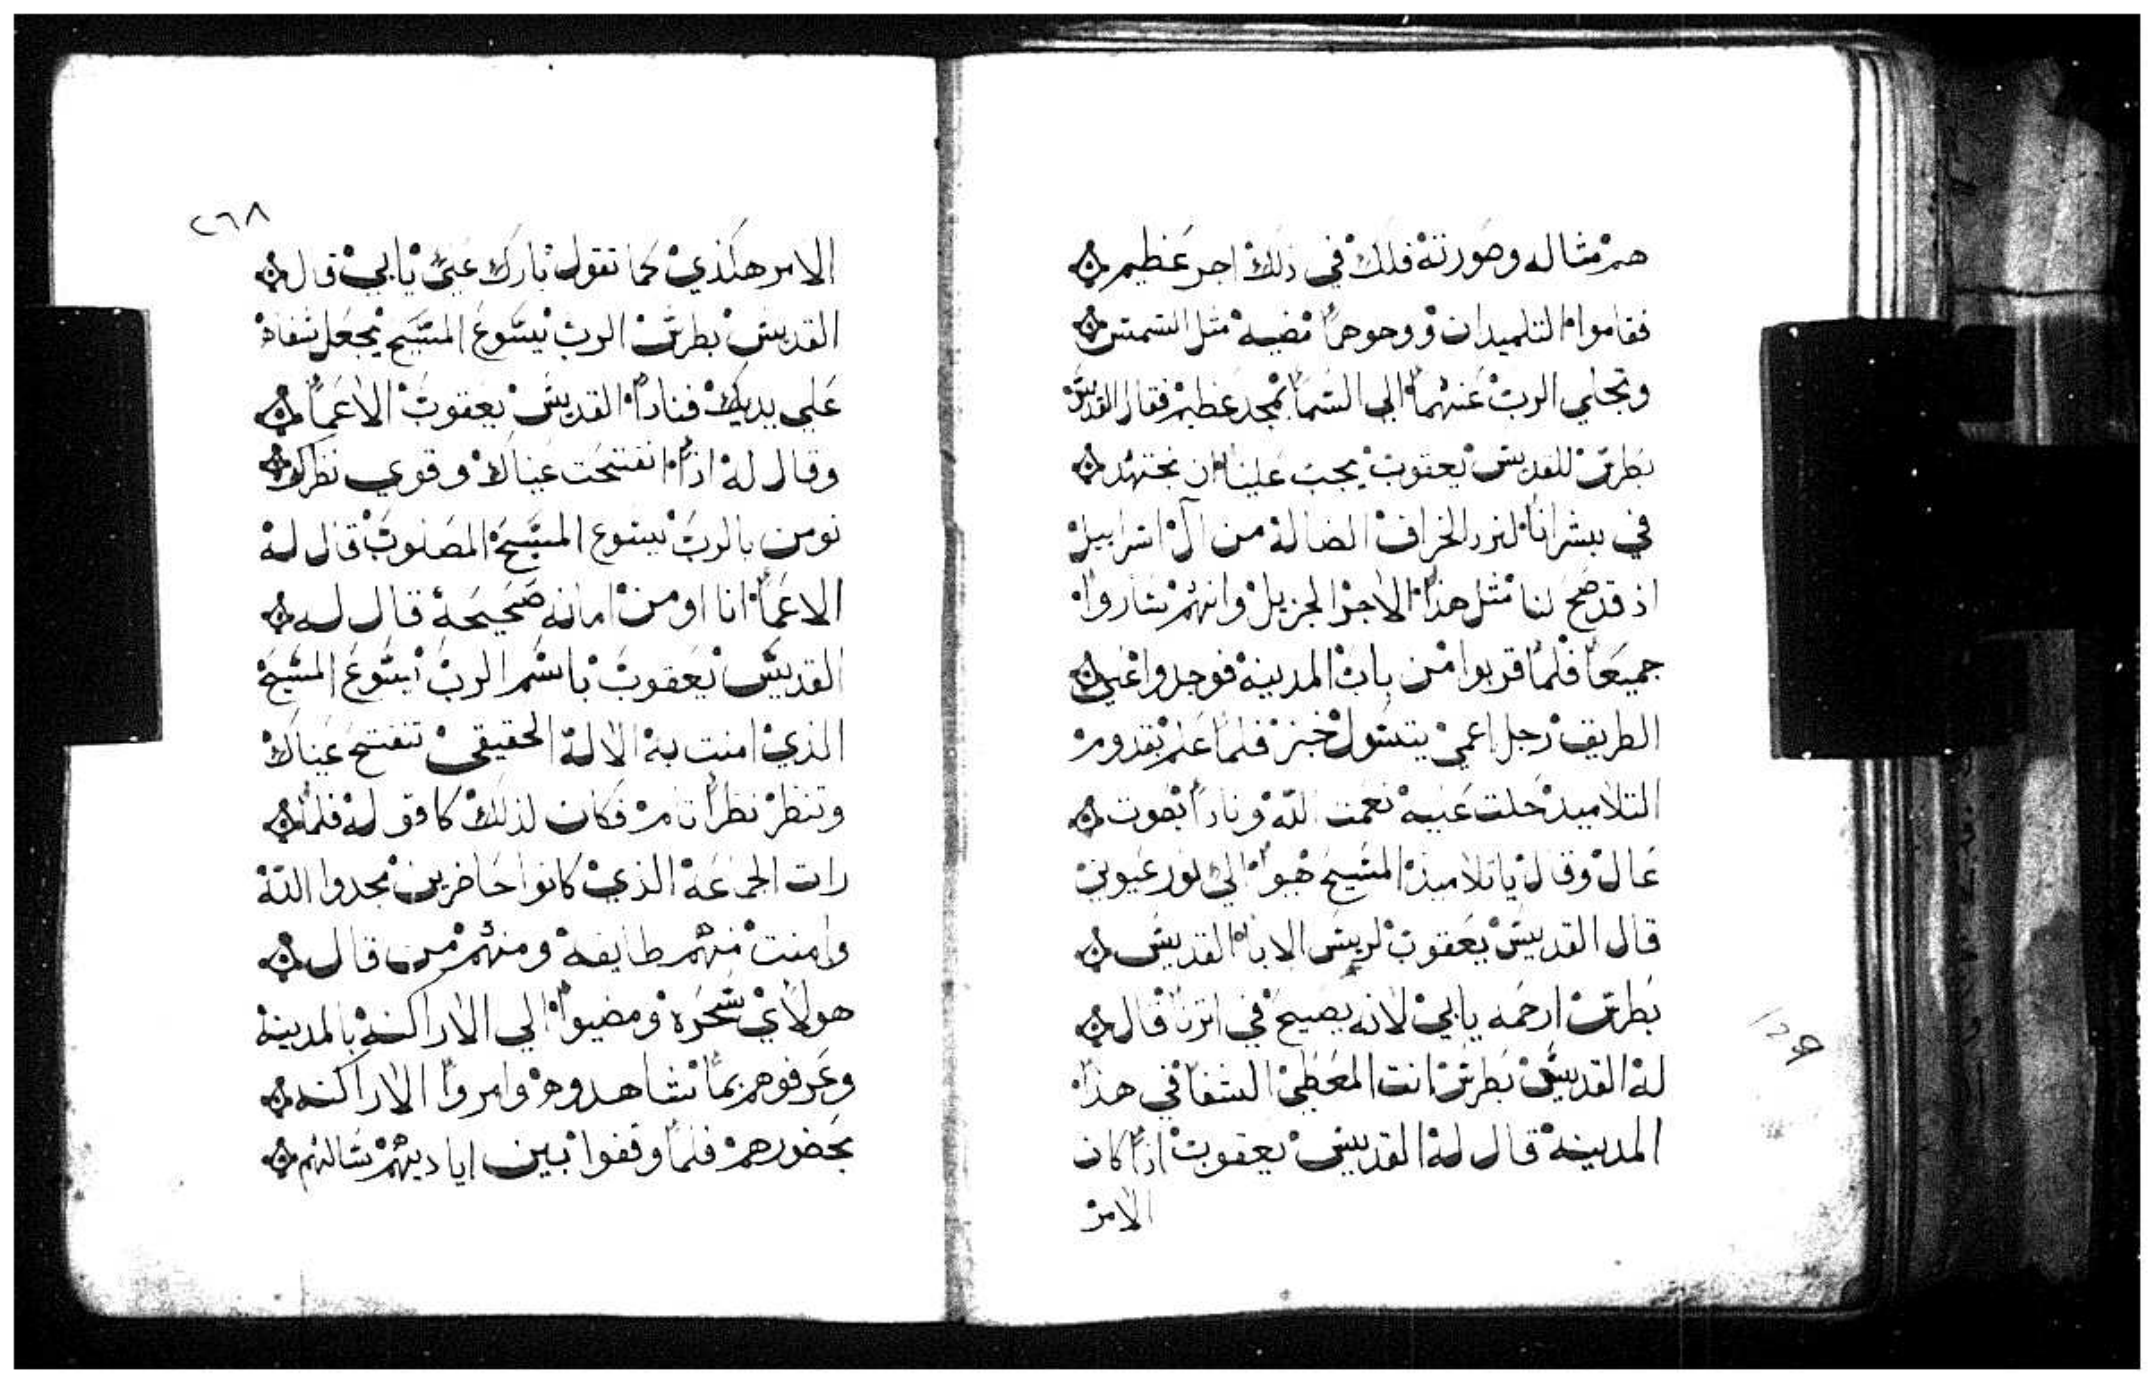 هم مثاله وصورته فلك في ذلك اجر عظيم
فقاموا التلميدان ووجوهما مضيه مثل الشمس
وتجلي الرب عنهما الي السما بمجد عظيم فقال القديس
بطرس للقديس يعقوب يجب علينا ان نجتهد
في بيشرانا لنرد الخراف الضاله من آل اسراييل
اذ قد صح لنا مثل هذا الاجر الجزيل وانهم ساروا
جميعا فلما قربوا من باب المدينه فوجدوا علي
الطريق رجل اعمي يتسول خبز فلما علم بقدوم
التلاميد حلت عليه نعمت الله ونادا بصوت
عال وقال ياتلاميذ المسيح هبوا الي نور عيوني
قال القديس يعقوب لريس الابا القديس
بطرس ارحمه يابي لانه يصيح في اثرنا قال
له القديس بطرس انت المعطي الشفا في هذا
المدينه قال له القديس يعقوب اذا كان
الامر
٢٦٨
الامر هكذي كما تقول بارك علي يا ابي قال
القديس بطرس الرب يسوع المسيح يجعل شفاه
علي يديك فنادا القديس يعقوب الاعما
وقال له اذا انفتحت عيناك وقوي نظرك
نومن بالرب يسوع المسيح المصلوب قال له
الاعما انا اومن امانه صحيحه قال له
القديس يعقوب باسم الرب يسوع المسيح
الذي امنت به الاله الحقيقي تنفتح عيناك
وتنظر نظرا تام فكان لذلك كا قوله فلما
رات الجمعه الذي كانوا حاضرين مجدوا الله
وامنت منهم طايفه ومنهم من قال
هولاي سحره ومضيوا الي الاراكنه بالمدينه
وعرفوهم بما شاهدوه وامروا الاراكنه
بحضورهم فلما وقفوا بين اياديهم سالهم
129